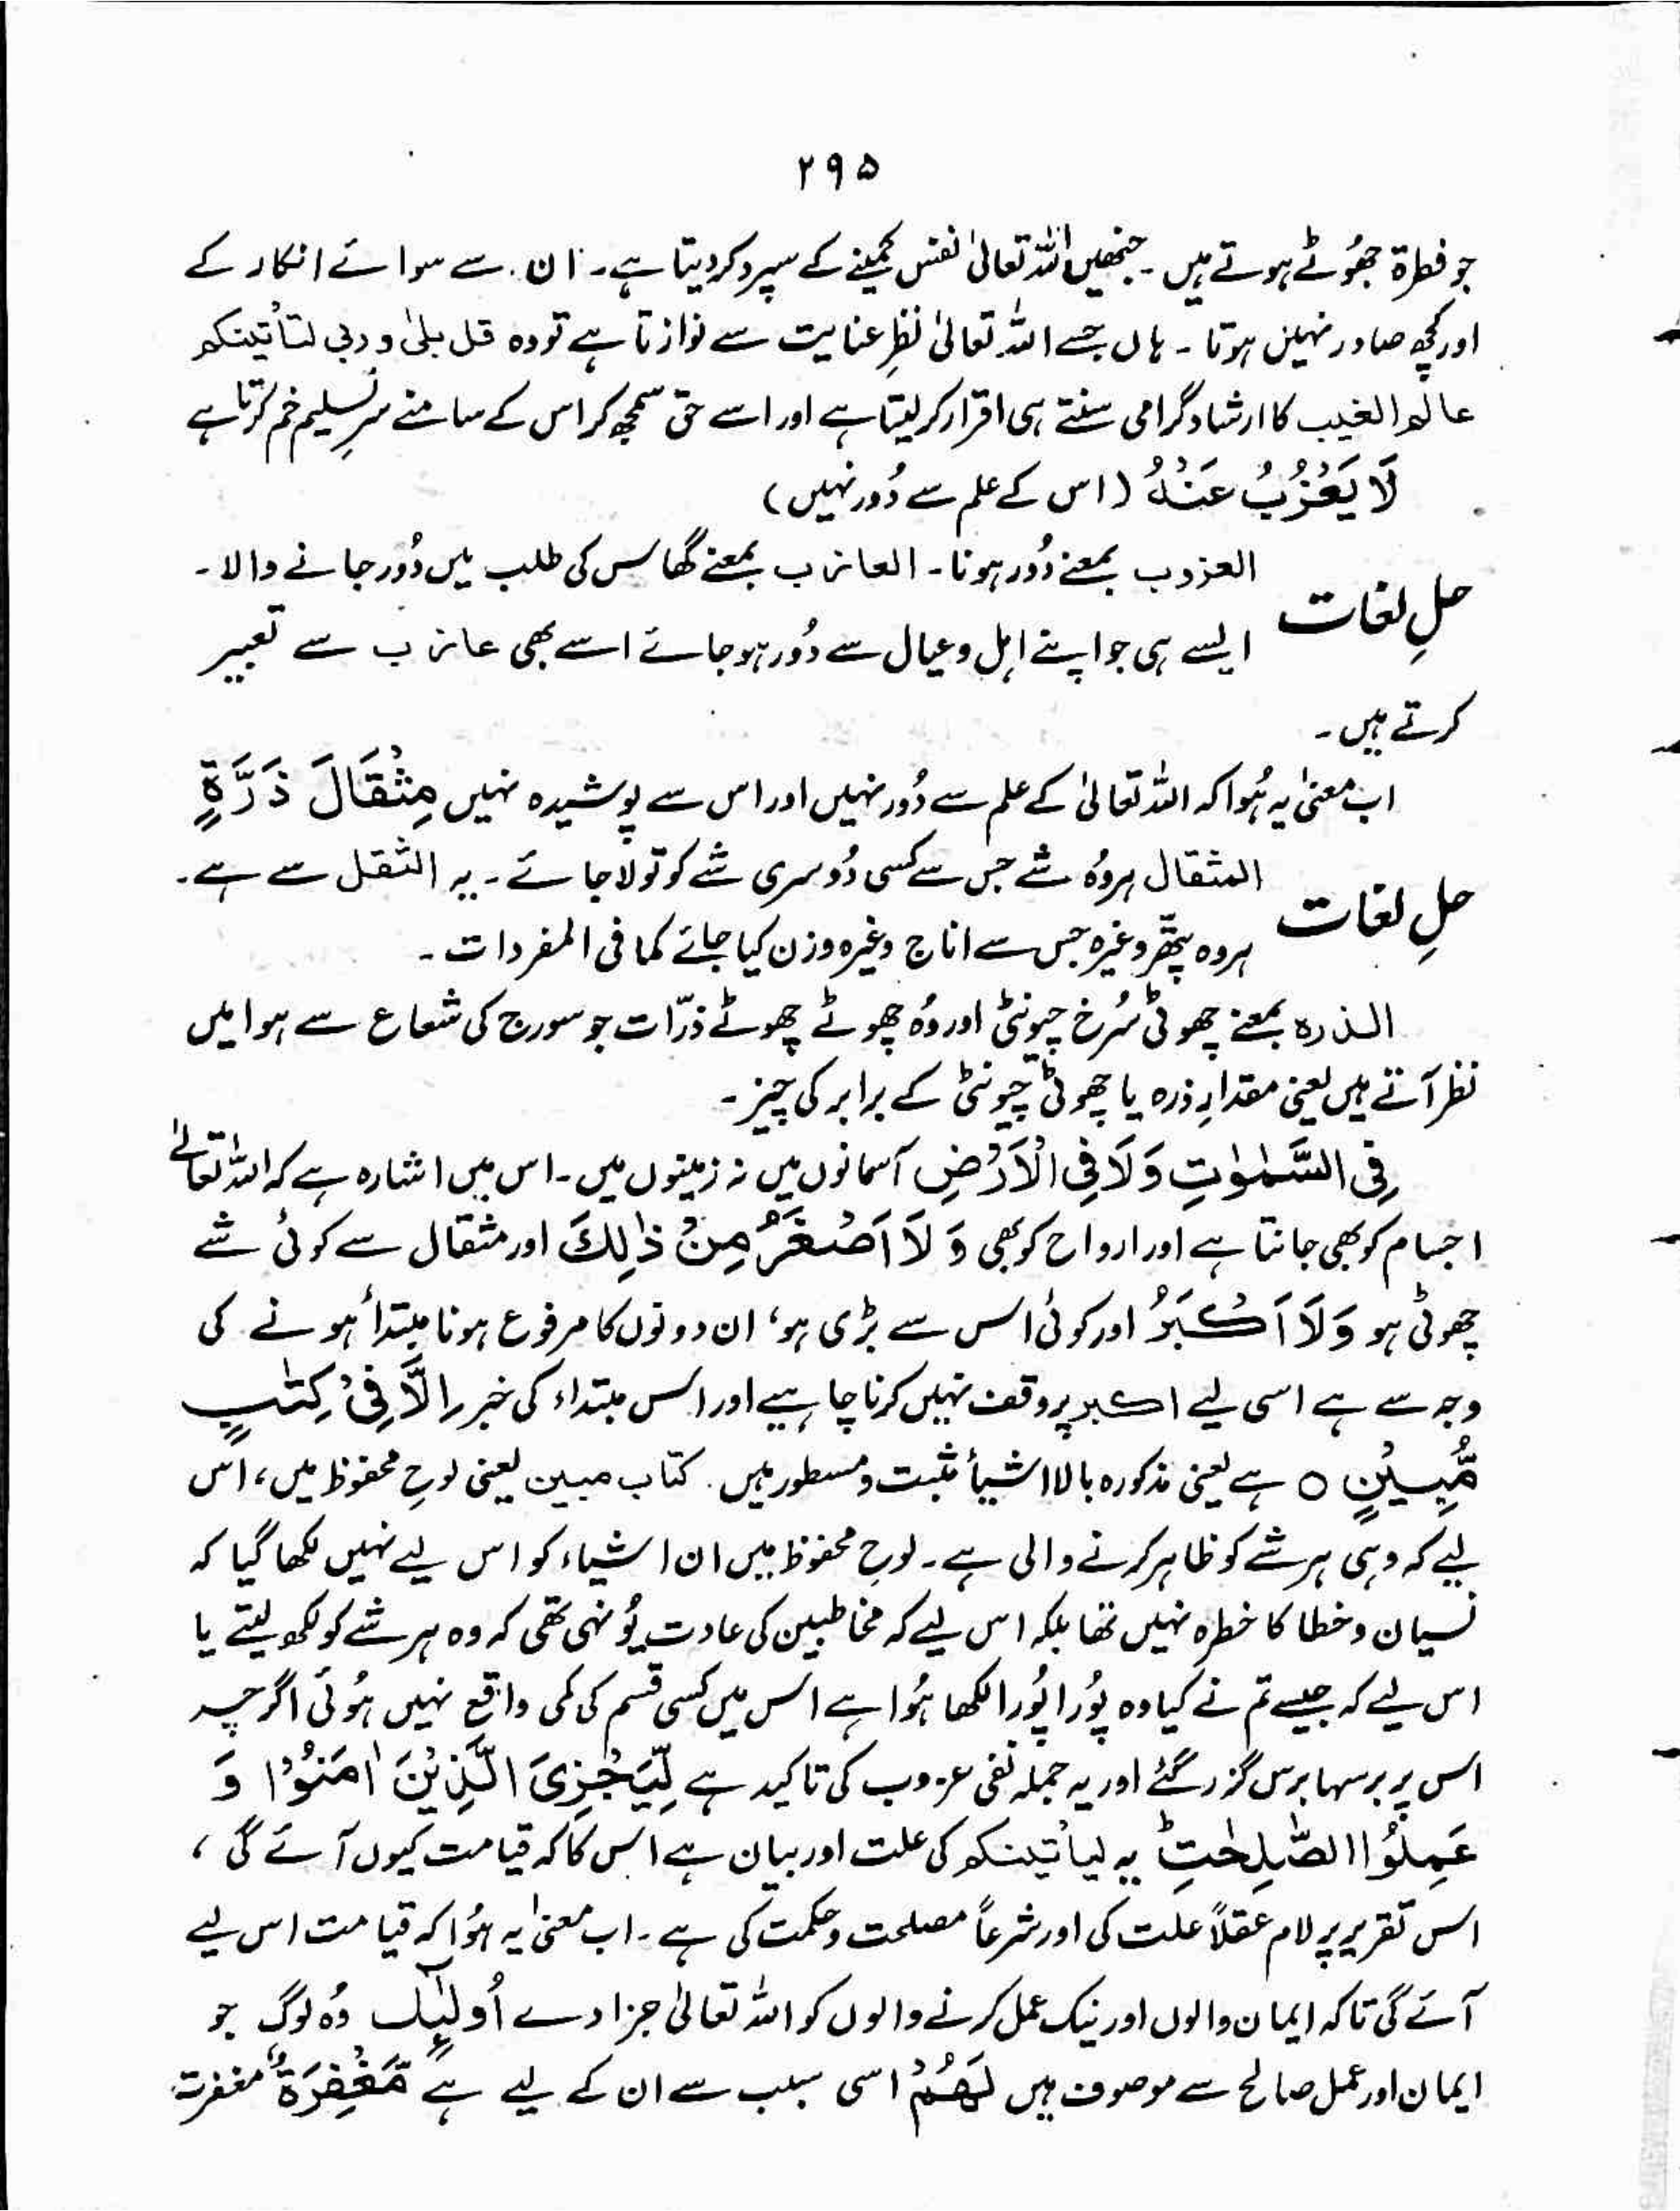 ۲۹۵
جو فطرۃ جھُوٹے ہوتے ہیں ۔ جنھیں اللہ تعالیٰ نفس کمینے کے سپرد کر دیتا ہے ۔ ان سے سوائے انکار کے
اور کچھ صادر نہیں ہوتا ۔ ہاں جسے اللہ تعالیٰ نظرِ عنایت سے نوازتا ہے تو وہ قل بلیٰ و ربی لتأتینکم
عالم الغیب کا ارشاد گرامی سنتے ہی اقرار کر لیتا ہے اور اسے حق سمجھ کر اس کے سامنے سرِ تسلیم خم کرتا ہے
لَا يَعْزُبُ عَنْهُ (اس کے علم سے دُور نہیں)
العزوب بمعنے دُور ہونا ۔ العازب بمعنے گھاس کی طلب میں دُور جانے والا ۔
حلِ لغات
ایسے ہی جو اپنے اہل و عیال سے دُور ہو جائے اسے بھی عازب سے تعبیر
کرتے ہیں ۔
اب معنیٰ یہ ہُوا کہ اللہ تعالیٰ کے علم سے دُور نہیں اور اس سے پوشیدہ نہیں مِثْقَالَ ذَرَّةٍ
المثقال ہر وُہ شے جس سے کسی دُوسری شے کو تولا جائے ۔ یہ الثقل سے ہے ۔
حلِ لغات
ہر وہ پتّھر وغیرہ جس سے اناج وغیرہ وزن کیا جائے کما فی المفردات ۔
الذرہ بمعنے چھوٹی سُرخ چیونٹی اور وُہ چھوٹے چھوٹے ذرّات جو سورج کی شعاع سے ہوا میں
نظر آتے ہیں یعنی مقدارِ ذرہ یا چھوٹی چیونٹی کے برابر کی چیز ۔
فِی السَّمٰوٰتِ وَلَا فِی الْاَرْضِ آسمانوں میں نہ زمینوں میں ۔ اس میں اشارہ ہے کہ اللہ تعالےٰ
اجسام کو بھی جانتا ہے اور ارواح کو بھی وَلَا اَصْغَرُ مِنْ ذٰلِكَ اور مثقال سے کوئی شے
چھوٹی ہو وَلَا اَكْبَرُ اور کوئی اس سے بڑی ہو، ان دونوں کا مرفوع ہونا مبتدأ ہونے کی
وجہ سے ہے اسی لیے اکبر پر وقف نہیں کرنا چاہیے اور اس مبتداء کی خبر اِلَّا فِیْ كِتٰبٍ
مُّبِیْنٍ ○ ہے یعنی مذکورہ بالا اشیأ مثبت و مسطور ہیں ۔ کتاب مبین یعنی لوحِ محفوظ میں، اس
لیے کہ وہی ہر شے کو ظاہر کرنے والی ہے ۔ لوحِ محفوظ میں ان اشیاء کو اس لیے نہیں لکھا گیا کہ
نسیان و خطا کا خطرہ نہیں تھا بلکہ اس لیے کہ مخاطبین کی عادت یُونہی تھی کہ وہ ہر شے کو لکھ لیتے یا
اس لیے کہ جیسے تم نے کیا وہ پُورا پُورا لکھا ہُوا ہے اس میں کسی قسم کی کمی واقع نہیں ہُوئی اگرچہ
اس پر برسہا برس گزر گئے اور یہ جملہ نفی عزوب کی تاکید ہے لِّیَجْزِیَ الَّذِیْنَ اٰمَنُوْا وَ
عَمِلُوا الصّٰلِحٰتِ ؕ یہ لیأتینکم کی علت اور بیان ہے اس کا کہ قیامت کیوں آئے گی ،
اس تقریر پر لام عقلاً علت کی اور شرعاً مصلحت و حکمت کی ہے ۔ اب معنیٰ یہ ہُوا کہ قیامت اس لیے
آئے گی تاکہ ایمان والوں اور نیک عمل کرنے والوں کو اللہ تعالیٰ جزا دے اُولٰٓئِكَ وُہ لوگ جو
ایمان اور عمل صالح سے موصوف ہیں لَهُمْ اسی سبب سے ان کے لیے ہے مَّغْفِرَةٌ مغفرت